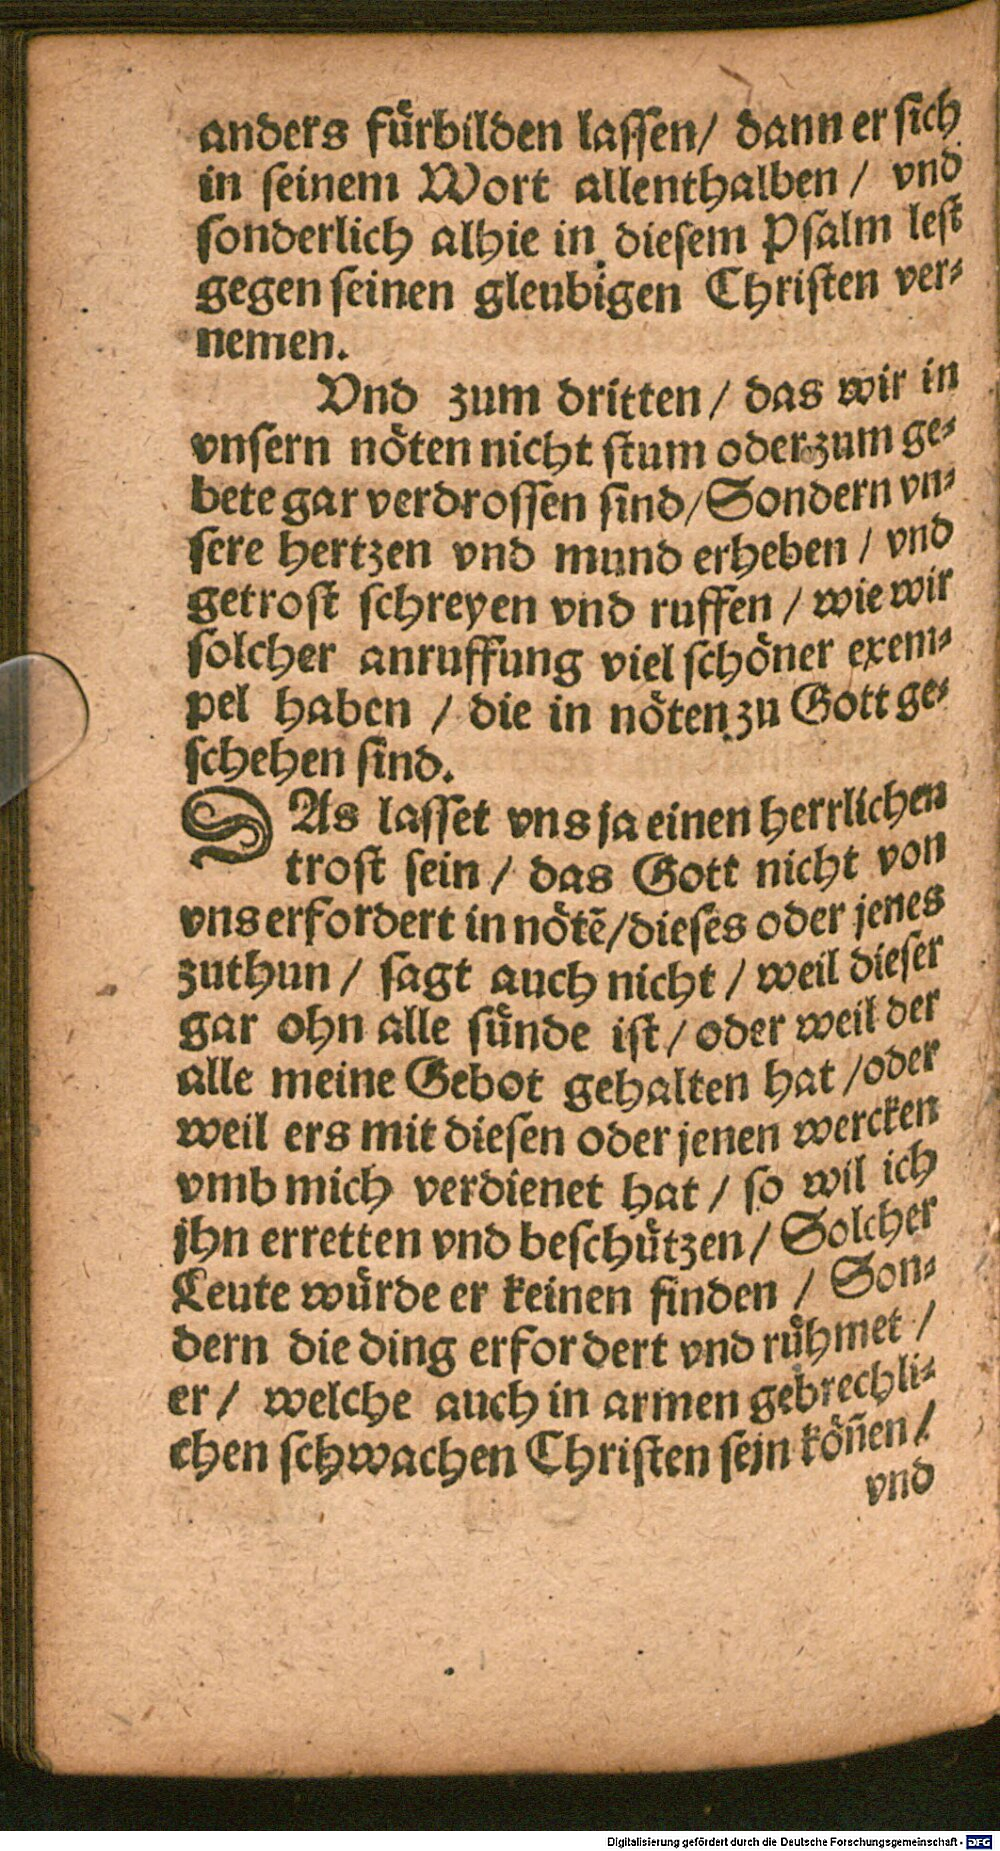 anders fürbilden lassen/ dann er sich
in seinem Wort allenthalben / vnd
sonderlich alhie in diesem Psalm lest
gegen seinen gleubigen Christen ver-
nemen.
Vnd zum dritten / das wir in
vnsern nöten nicht stum oder zum ge-
bete gar verdrossen sind/ Sondern vn-
sere hertzen vnd mund erheben / vnd
getrost schreyen vnd ruffen / wie wir
solcher anruffung viel schöner exem-
pel haben / die in nöten zu Gott ge-
schehen sind.
DAs lasset vns ja einen herrlichen
trost sein / das Gott nicht von
vns erfordert in nötẽ/dieses oder jenes
zuthun / sagt auch nicht / weil dieser
gar ohn alle sünde ist / oder weil der
alle meine Gebot gehalten hat /oder
weil ers mit diesen oder jenen wercken
vmb mich verdienet hat / so wil ich
jhn erretten vnd beschützen/ Solcher
Leute würde er keinen finden / Son-
dern die ding erfordert vnd rühmet /
er / welche auch in armen gebrechli-
chen schwachen Christen sein köñen /
vnd
Digitalisierung gefördert durch die Deutsche Forschungsgemeinschaft - DFG